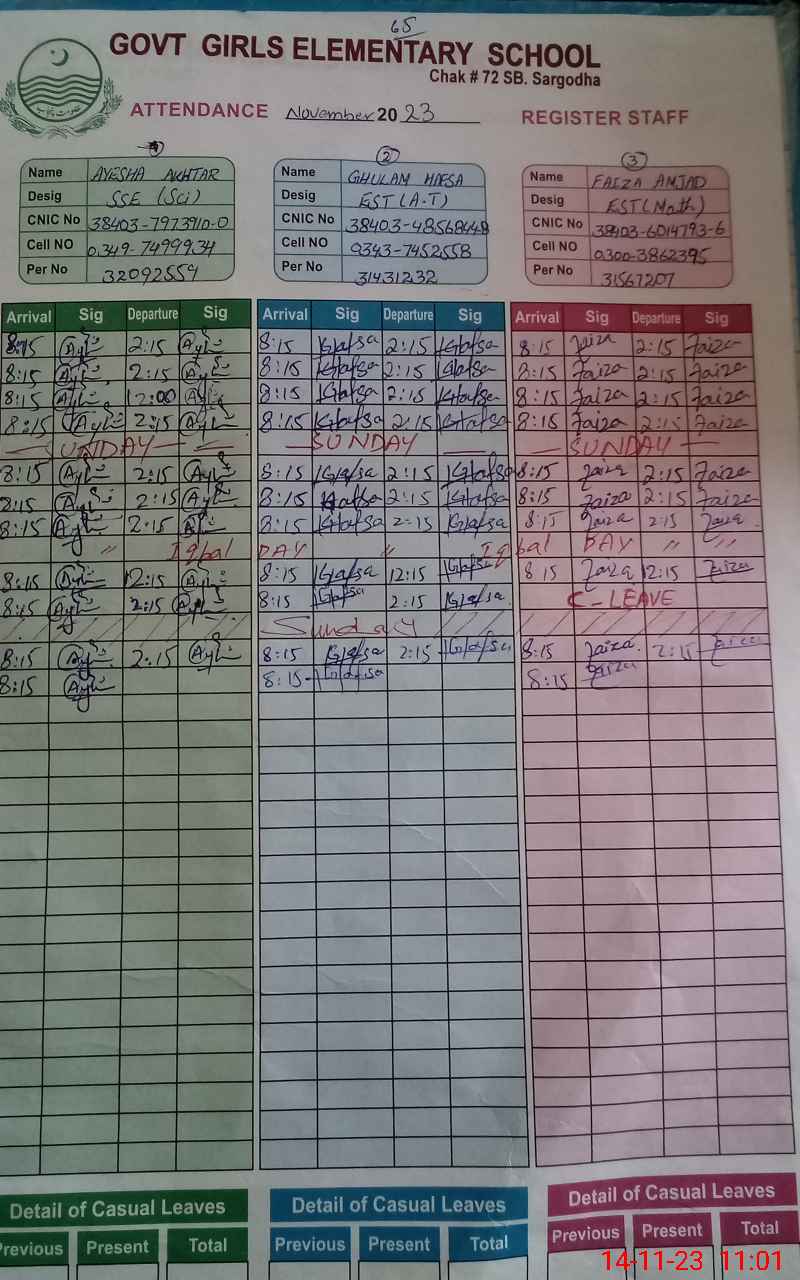 65
GOVT GIRLS ELEMENTARY SCHOOL
Chak # 72 SB. Sargodha
ATTENDANCE November 2023 REGISTER STAFF
② ③
Name AYESHA AKHTAR Name GHULAM HAFSA Name FAIZA AMJAD
Desig SSE (Sci) Desig EST (A-T) Desig EST (Math)
CNIC No 38403-7973910-0 CNIC No 38403-4856844-8 CNIC No 38403-6014793-6
Cell NO 0349-7499934 Cell NO 0343-7452558 Cell NO 0300-3862395
Per No 32092559 Per No 31431232 Per No 31567207
Arrival Sig Departure Sig Arrival Sig Departure Sig Arrival Sig Departure Sig
8:15 2:15 8:15 Hafsa 2:15 Hafsa 8:15 Faiza 2:15 Faiza
8:15 2:15 8:15 Hafsa 2:15 Hafsa 8:15 Faiza 2:15 Faiza
8:15 12:00 8:15 Hafsa 2:15 Hafsa 8:15 Faiza 2:15 Faiza
8:15 2:15 8:15 Hafsa 2:15 Hafsa 8:15 Faiza 2:15 Faiza
SUNDAY SUNDAY SUNDAY
8:15 2:15 8:15 Hafsa 2:15 Hafsa 8:15 Faiza 2:15 Faiza
8:15 2:15 8:15 Hafsa 2:15 Hafsa 8:15 Faiza 2:15 Faiza
8:15 2:15 8:15 Hafsa 2:15 Hafsa 8:15 Faiza 2:15 Faiza
" Iqbal DAY " Iqbal DAY " "
8:15 12:15 8:15 Hafsa 12:15 Hafsa 8 15 Faiza 12:15 Faiza
8:15 2:15 8:15 Hafsa 2:15 Hafsa C-LEAVE
Sunday
8:15 2:15 8:15 Hafsa 2:15 Hafsa 8:15 Faiza 2:15 Faiza
8:15 8:15 Hafsa 8:15 Faiza
Detail of Casual Leaves Detail of Casual Leaves Detail of Casual Leaves
Previous Present Total Previous Present Total Previous Present Total
14-11-23 11:01